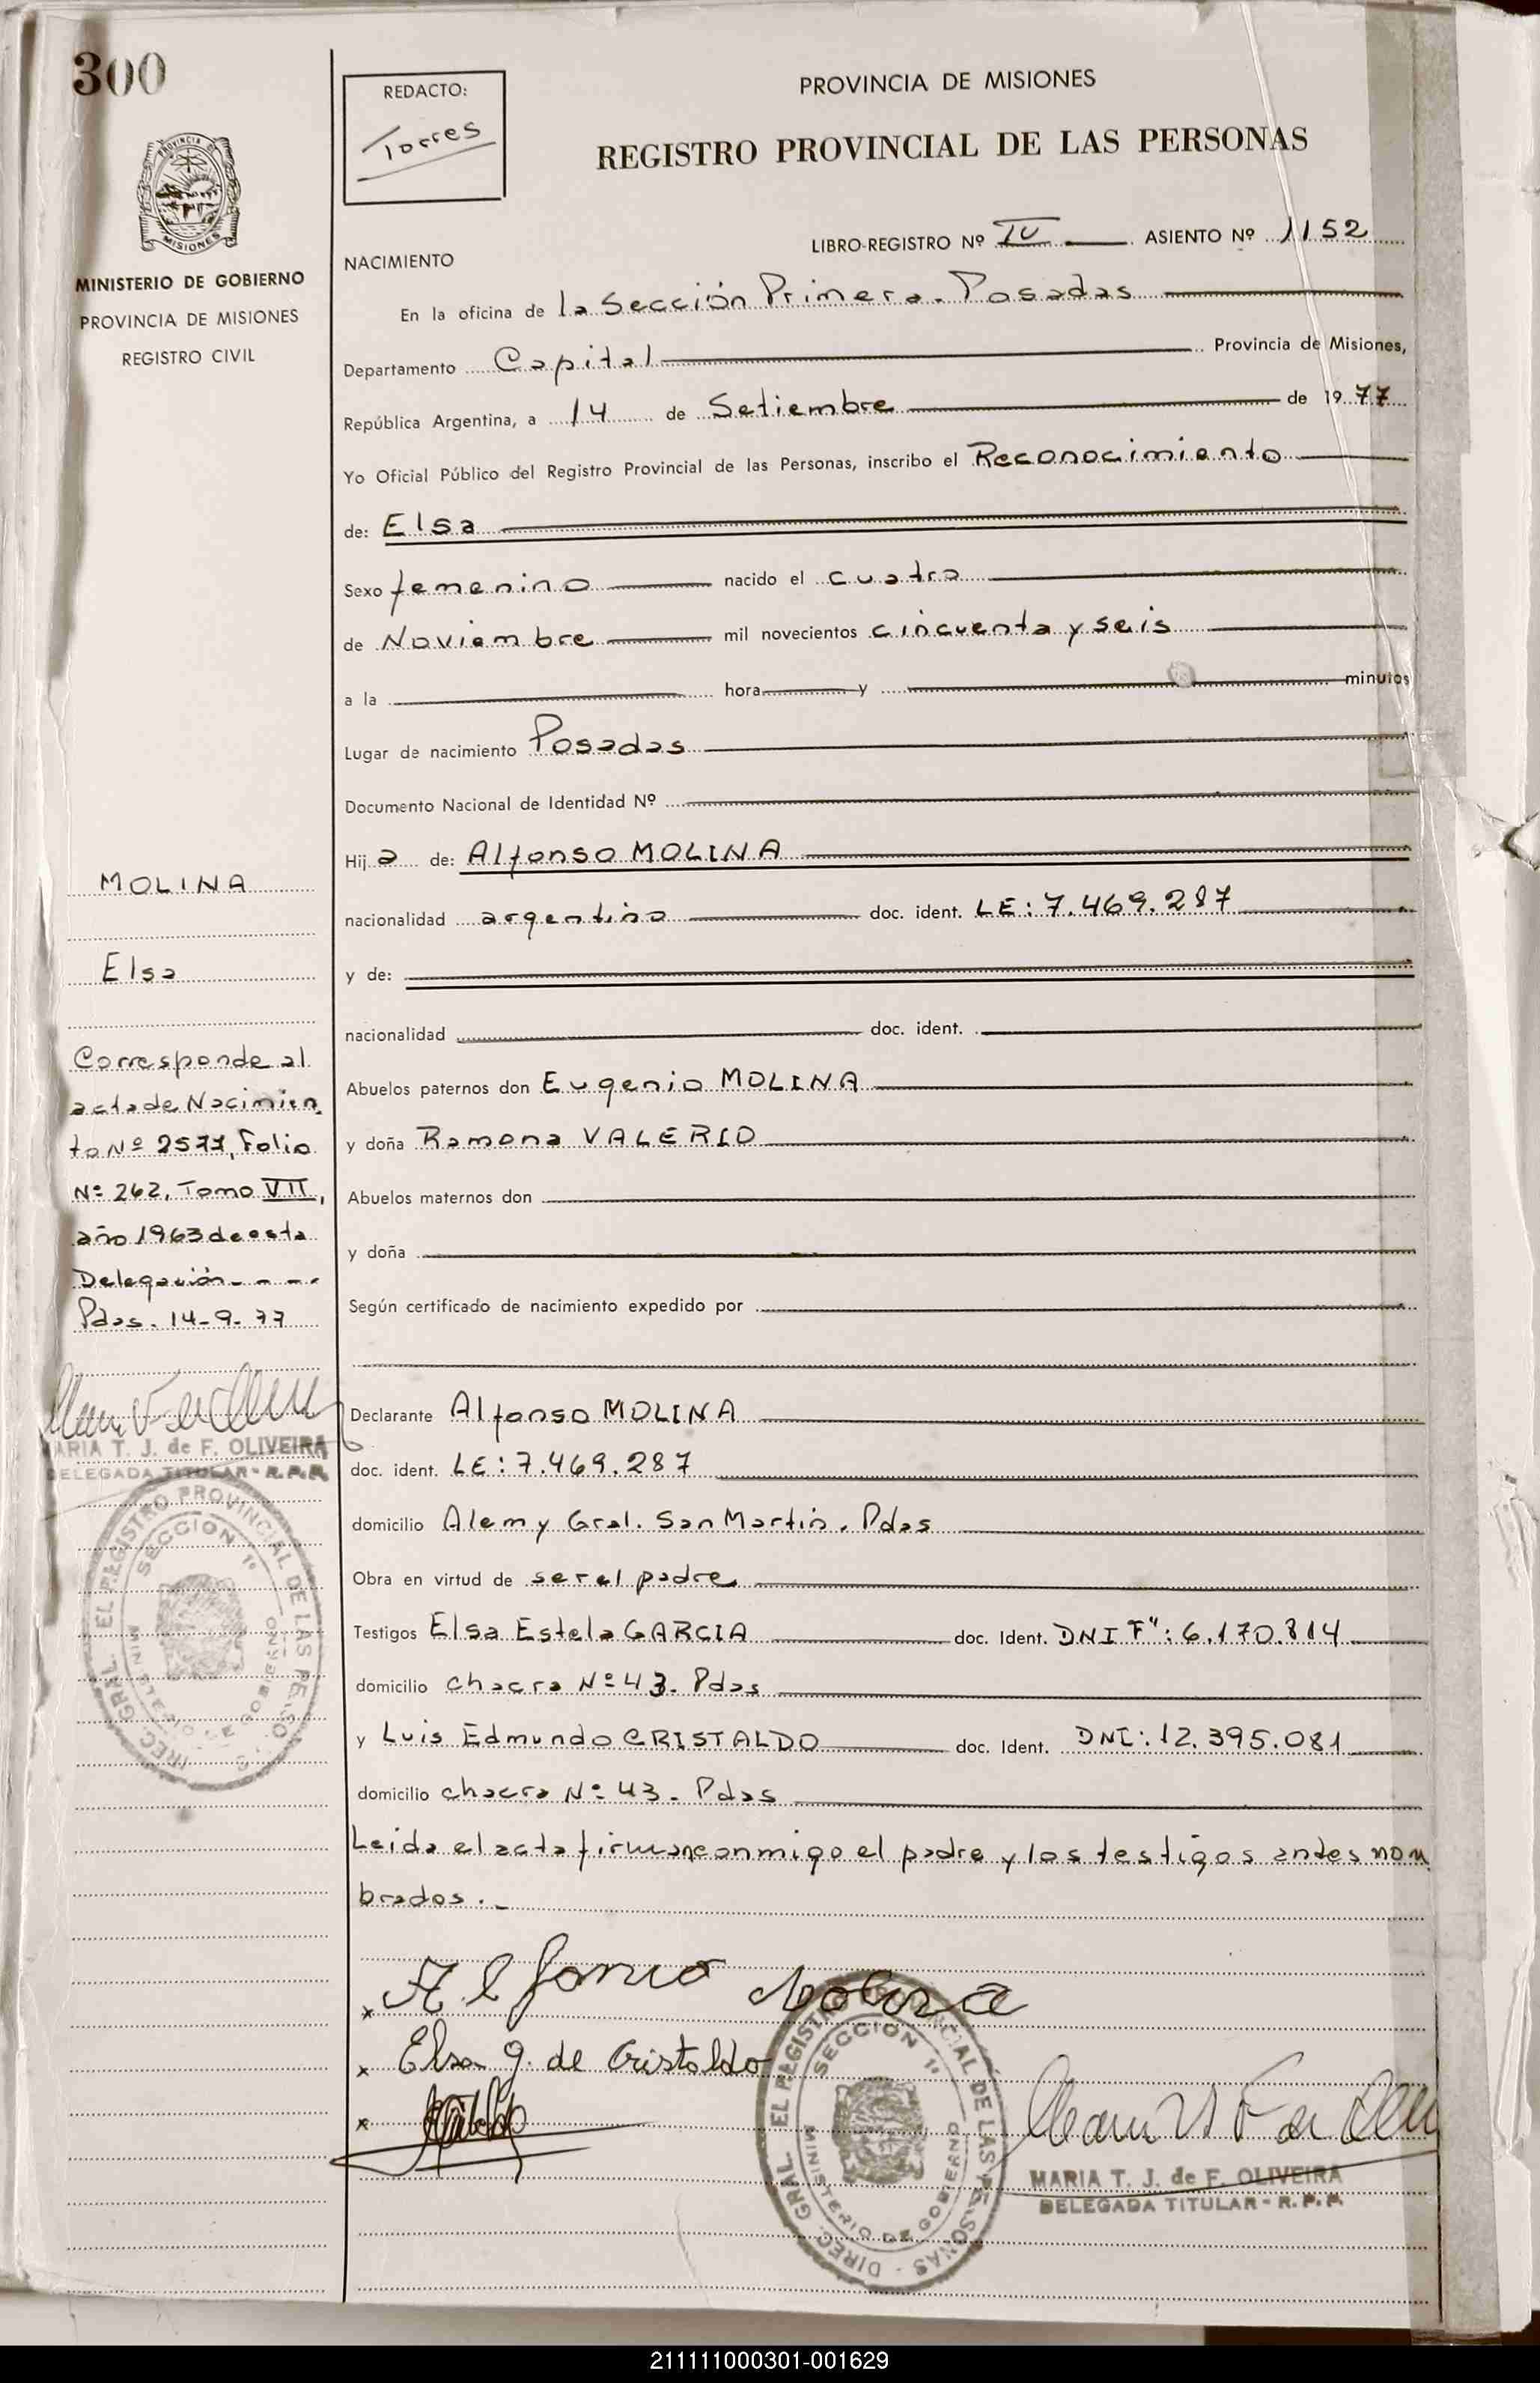 300
REDACTO:
Torres
PROVINCIA DE MISIONES
REGISTRO PROVINCIAL DE LAS PERSONAS
LIBRO-REGISTRO Nº IV ASIENTO Nº 1152
PROVINCIA DE
MISIONES
MINISTERIO DE GOBIERNO
PROVINCIA DE MISIONES
REGISTRO CIVIL
NACIMIENTO
En la oficina de la Sección Primera. Posadas
Departamento Capital Provincia de Misiones,
República Argentina, a 14 de Setiembre de 1977
Yo Oficial Público del Registro Provincial de las Personas, inscribo el Reconocimiento
de: Elsa
Sexo femenino nacido el cuatro
de Noviembre mil novecientos cincuenta y seis
a la hora y minutos
Lugar de nacimiento Posadas
Documento Nacional de Identidad Nº
Hij a de: Alfonso MOLINA
nacionalidad argentino doc. ident. LE: 7.469.287
y de:
nacionalidad doc. ident.
Abuelos paternos don Eugenio MOLINA
y doña Ramona VALERIO
Abuelos maternos don
y doña
Según certificado de nacimiento expedido por
Declarante Alfonso MOLINA
doc. ident. LE: 7.469.287
domicilio Alem y Gral. San Martin. Pdas
Obra en virtud de ser el padre
Testigos Elsa Estela GARCIA doc. Ident. DNI F": 6.170.814
domicilio chacra Nº 43. Pdas
y Luis Edmundo CRISTALDO doc. Ident. DNI: 12.395.081
domicilio chacra Nº 43. Pdas
Leida el acta firman conmigo el padre y los testigos antes nom
brados.-
MOLINA
Elsa
Corresponde al
acta de Nacimien
to Nº 2577, Folio
Nº 262, Tomo VII,
año 1963 de esta
Delegación - - - -
Pdas. 14-9-77
MARIA T. J. de F. OLIVEIRA
DELEGADA TITULAR - R.P.P.
DIREC. GRAL. EL REGISTRO PROVINCIAL DE LAS PERSONAS
SECCION 1º
MINISTERIO DE GOBIERNO
x Alfonso Molina
x Elsa G. de Cristaldo
x
DIREC. GRAL. EL REGISTRO PROVINCIAL DE LAS PERSONAS
SECCION 1º
MINISTERIO DE GOBIERNO
MARIA T. J. de F. OLIVEIRA
DELEGADA TITULAR - R.P.P.
211111000301-001629